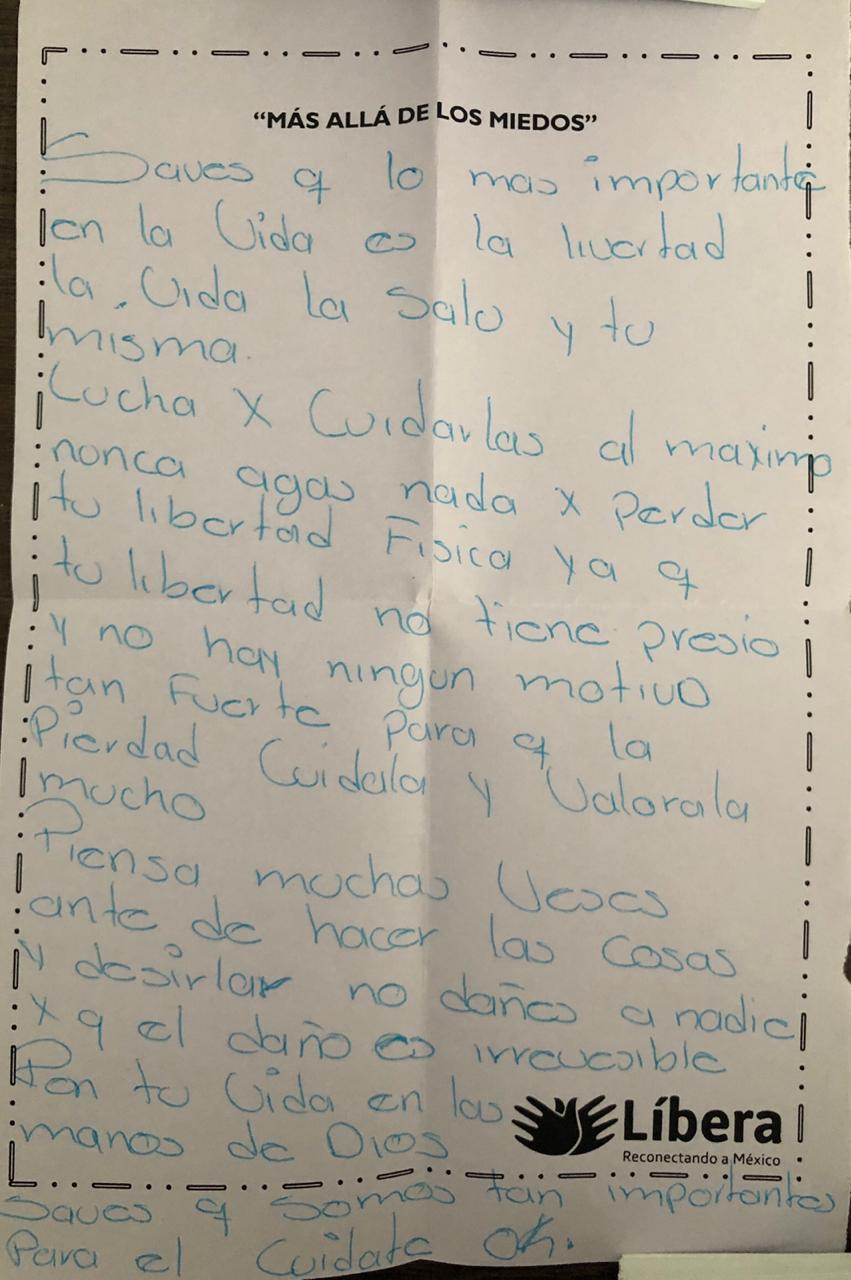 “MÁS ALLÁ DE LOS MIEDOS”
Saves q lo mas importante
en la Vida es la livertad
la. Vida la Salu y tu
misma.
Lucha X Cuidarlas al maximo
nunca agas nada x Perder
tu libertad Fisica ya q
tu libertad no tiene presio
y no hay ningun motivo
tan Fuerte Para q la
Pierdad Cuidala y Valorala
mucho
Piensa muchas Veses
ante de hacer las Cosas
y desirlar no dañes a nadie
x q el daño es irrevesible
Pon tu Vida en las
manos de Dios
Líbera
Reconectando a México
Saves q Somos tan importantes
Para el Cuidate Ok.